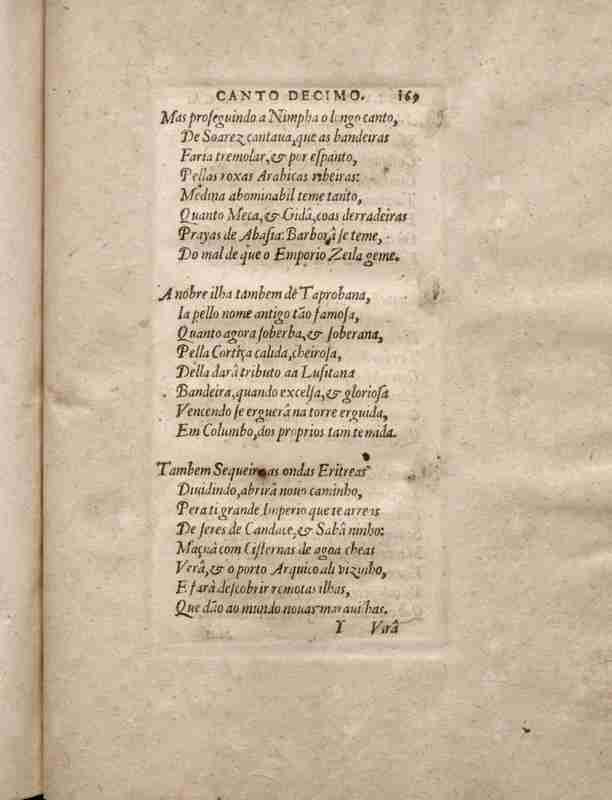 CANTO DECIMO. 169
Mas proſeguindo a Nimpha o longo canto,
De Soarez cantaua, que as bandeiras
Faria tremolar, & por eſpanto,
Pellas roxas Arabicas ribeiras:
Medina abominabil teme tanto,
Quanto Meca, & Gidâ, coas derradeiras
Prayas de Abaſia: Barborâ ſe teme,
Do mal de que o Emporio Zeila geme.
A nobre ilha tambem de Taprobana,
Ia pello nome antigo tão famoſa,
Quanto agora ſoberba, & ſoberana,
Pella Cortiça calida, cheiroſa,
Della darâ tributo aa Luſitana
Bandeira, quando excelſa, & glorioſa
Vencendo ſe erguerâ na torre erguida,
Em Columbo, dos proprios tam temida.
Tambem Sequeira as ondas Eritreas
Diuidindo, abrirâ nouo caminho,
Pera ti grande Imperio que te arreas
De ſeres de Candace, & Sabâ ninho:
Maçuâ com Ciſternas de agoa cheas
Verâ, & o porto Arquico ali vizinho,
E farâ deſcobrir remotas ilhas,
Que dão ao mundo nouas marauilhas.
Y Virâ